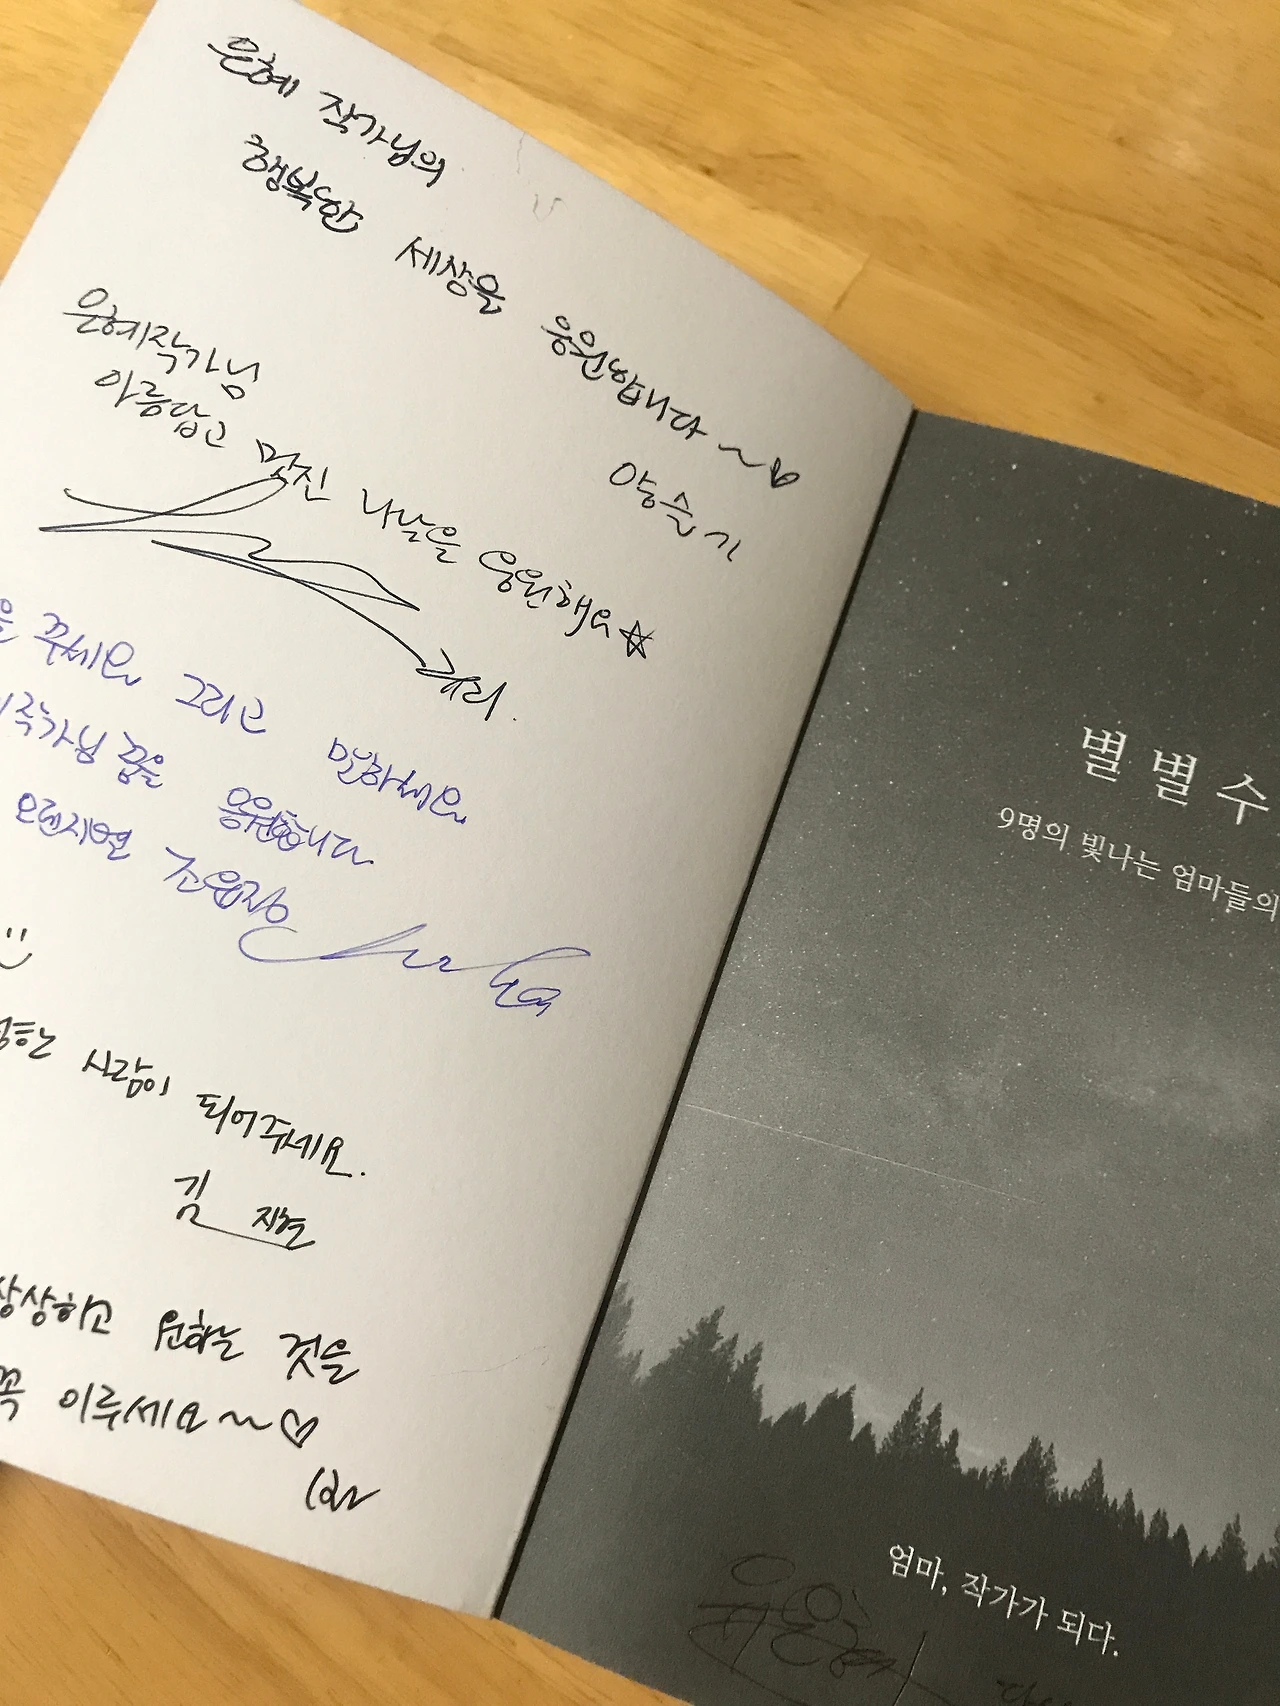 은혜 작가님의
행복한 세상을 응원합니다~♡
양슬기
은혜작가님
아름답고 멋진 나날을 응원해요☆
주세요 그리고 말하세요
작가님 꿈을 응원합니다
조윤정
:)
한 사람이 되어주세요.
김지현
상상하고 원하는 것을
꼭 이루세요~♡
별별수
9명의 빛나는 엄마들의
엄마, 작가가 되다.